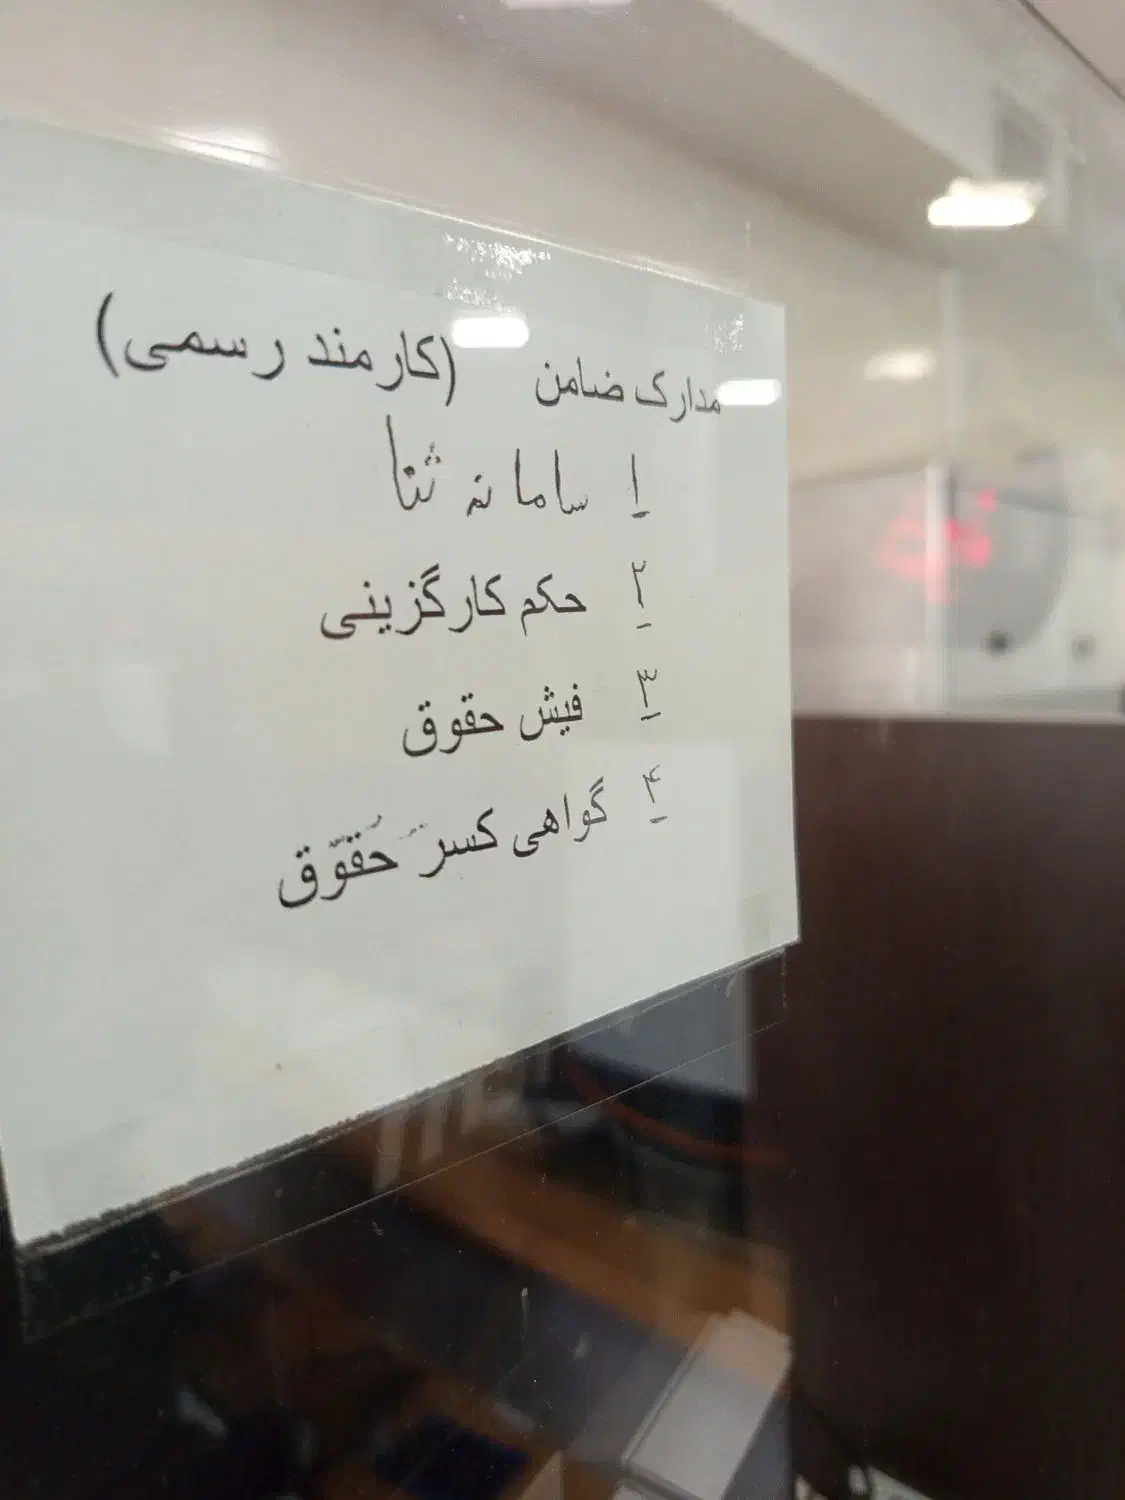 مدارک ضامن (کارمند رسمی)
۱ سامانه ثنا
۲ حکم کارگزینی
۳ فیش حقوق
۴ گواهی کسر حقوق